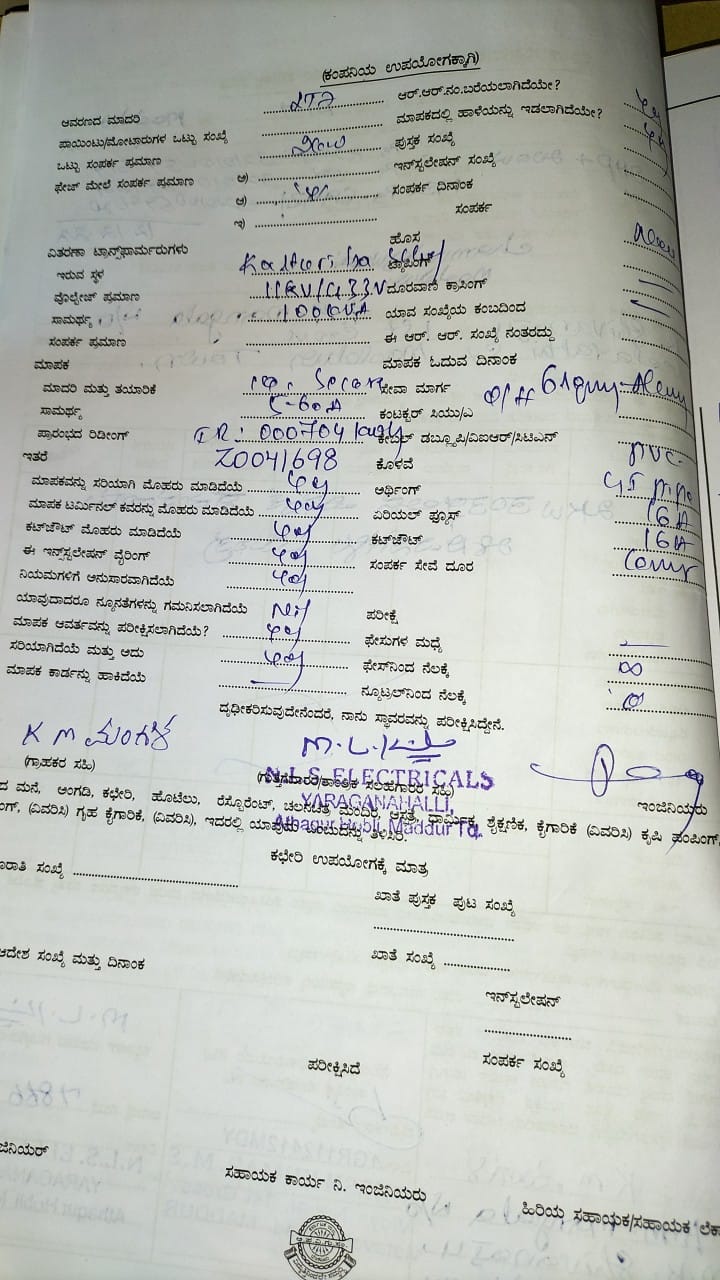 (ಕಂಪನಿಯ ಉಪಯೋಗಕ್ಕಾಗಿ)
ಆವರಣದ ಮಾದರಿ ............ ಆರ್.ಆರ್.ನಂ.ಬರೆಯಲಾಗಿದೆಯೇ? yes
ಪಾಯಿಂಟು/ಮೋಟಾರುಗಳ ಒಟ್ಟು ಸಂಖ್ಯೆ ............ ಮಾಪಕದಲ್ಲಿ ಹಾಳೆಯನ್ನು ಇಡಲಾಗಿದೆಯೇ? yes
ಒಟ್ಟು ಸಂಪರ್ಕ ಪ್ರಮಾಣ ............ ಪುಸ್ತಕ ಸಂಖ್ಯೆ
ಫೇಜ್ ಮೇಲೆ ಸಂಪರ್ಕ ಪ್ರಮಾಣ ಅ) ............ ಇನ್‌ಸ್ಟಲೇಷನ್ ಸಂಖ್ಯೆ
ಆ) ............ ಸಂಪರ್ಕ ದಿನಾಂಕ
ಇ) ............ ಸಂಪರ್ಕ
ವಿತರಣಾ ಟ್ರಾನ್ಸ್‌ಫಾರ್ಮರುಗಳು ಹೊಸ
ಇರುವ ಸ್ಥಳ ಟ್ಯಾಪಿಂಗ್
ವೊಲ್ಟೇಜ್ ಪ್ರಮಾಣ 11KV/433V ದೂರವಾಣಿ ಕ್ರಾಸಿಂಗ್
ಸಾಮರ್ಥ್ಯ 100KVA ಯಾವ ಸಂಖ್ಯೆಯ ಕಂಬದಿಂದ
ಸಂಪರ್ಕ ಪ್ರಮಾಣ ............ ಈ ಆರ್. ಆರ್. ಸಂಖ್ಯೆ ನಂತರದ್ದು
ಮಾಪಕ ಮಾಪಕ ಓದುವ ದಿನಾಂಕ
ಮಾದರಿ ಮತ್ತು ತಯಾರಿಕೆ ಸೇವಾ ಮಾರ್ಗ
ಸಾಮರ್ಥ್ಯ 5-60A ಕಂಟಕ್ಟರ್ ಸಿಯು/ಎ
ಪ್ರಾರಂಭದ ರಿಡೀಂಗ್ IR: 000704 ಕೇಬಲ್ ಡಬ್ಲ್ಯೂಪಿ/ವಿಐಆರ್/ಸಿಟಿಎನ್
ಇತರೆ Z0041698 ಕೊಳವೆ PVC
ಮಾಪಕವನ್ನು ಸರಿಯಾಗಿ ಮೊಹರು ಮಾಡಿದೆಯೆ yes ಅರ್ಥಿಂಗ್ GI pipe
ಮಾಪಕ ಟರ್ಮಿನಲ್ ಕವರನ್ನು ಮೊಹರು ಮಾಡಿದೆಯೆ yes ಏರಿಯಲ್ ಫ್ಯೂಸ್ 16A
ಕಟ್‌ಔಟ್ ಮೊಹರು ಮಾಡಿದೆಯೆ yes ಕಟ್‌ಔಟ್ 16A
ಈ ಇನ್‌ಸ್ಟಲೇಷನ್ ವೈರಿಂಗ್ yes ಸಂಪರ್ಕ ಸೇವೆ ದೂರ
ನಿಯಮಗಳಿಗೆ ಅನುಸಾರವಾಗಿದೆಯೆ yes
ಯಾವುದಾದರೂ ನ್ಯೂನತೆಗಳನ್ನು ಗಮನಿಸಲಾಗಿದೆಯೆ Nil ಪರೀಕ್ಷೆ
ಮಾಪಕ ಆವರ್ತವನ್ನು ಪರೀಕ್ಷಿಸಲಾಗಿದೆಯೆ? yes ಫೇಸುಗಳ ಮಧ್ಯೆ
ಸರಿಯಾಗಿದೆಯೆ ಮತ್ತು ಅದು yes ಫೇಸ್‌ನಿಂದ ನೆಲಕ್ಕೆ ∞
ಮಾಪಕ ಕಾರ್ಡನ್ನು ಹಾಕಿದೆಯೆ ನ್ಯೂಟ್ರಲ್‌ನಿಂದ ನೆಲಕ್ಕೆ
ದೃಢೀಕರಿಸುವುದೇನೆಂದರೆ, ನಾನು ಸ್ಥಾವರವನ್ನು ಪರೀಕ್ಷಿಸಿದ್ದೇನೆ.
K M ಮಂಗಳ
(ಗ್ರಾಹಕರ ಸಹಿ) (ಗುತ್ತಿಗೆದಾರರ/ತಾಂತ್ರಿಕ ಸಲಹೆಗಾರರ ಸಹಿ) ಇಂಜಿನಿಯರು
N.L.S ELECTRICALS
YARAGANAHALLI,
Athagur Hubli, Maddur Tq.
ದ ಮನೆ, ಅಂಗಡಿ, ಕಛೇರಿ, ಹೊಟೆಲು, ರೆಸ್ಟೋರೆಂಟ್, ಚಲನಚಿತ್ರ ಮಂದಿರ, ಆಸ್ಪತ್ರೆ, ಧಾರ್ಮಿಕ, ಶೈಕ್ಷಣಿಕ, ಕೈಗಾರಿಕೆ (ವಿವರಿಸಿ) ಕೃಷಿ ಪಂಪಿಂಗ್,
ಂಗ್, (ವಿವರಿಸಿ) ಗೃಹ ಕೈಗಾರಿಕೆ, (ವಿವರಿಸಿ), ಇದರಲ್ಲಿ ಯಾವುದು ಎಂಬುದನ್ನು ತಿಳಿಸಿರಿ.
ಕಛೇರಿ ಉಪಯೋಗಕ್ಕೆ ಮಾತ್ರ
ಾರಾತಿ ಸಂಖ್ಯೆ ............ ಖಾತೆ ಪುಸ್ತಕ ಪುಟ ಸಂಖ್ಯೆ
............
ಆದೇಶ ಸಂಖ್ಯೆ ಮತ್ತು ದಿನಾಂಕ ಖಾತೆ ಸಂಖ್ಯೆ ............
ಇನ್‌ಸ್ಟಲೇಷನ್
............
ಪರೀಕ್ಷಿಸಿದೆ ಸಂಪರ್ಕ ಸಂಖ್ಯೆ
ಜಿನಿಯರ್ ಸಹಾಯಕ ಕಾರ್ಯ ನಿ. ಇಂಜಿನಿಯರು ಹಿರಿಯ ಸಹಾಯಕ/ಸಹಾಯಕ ಲೆಕ್ಕಾ